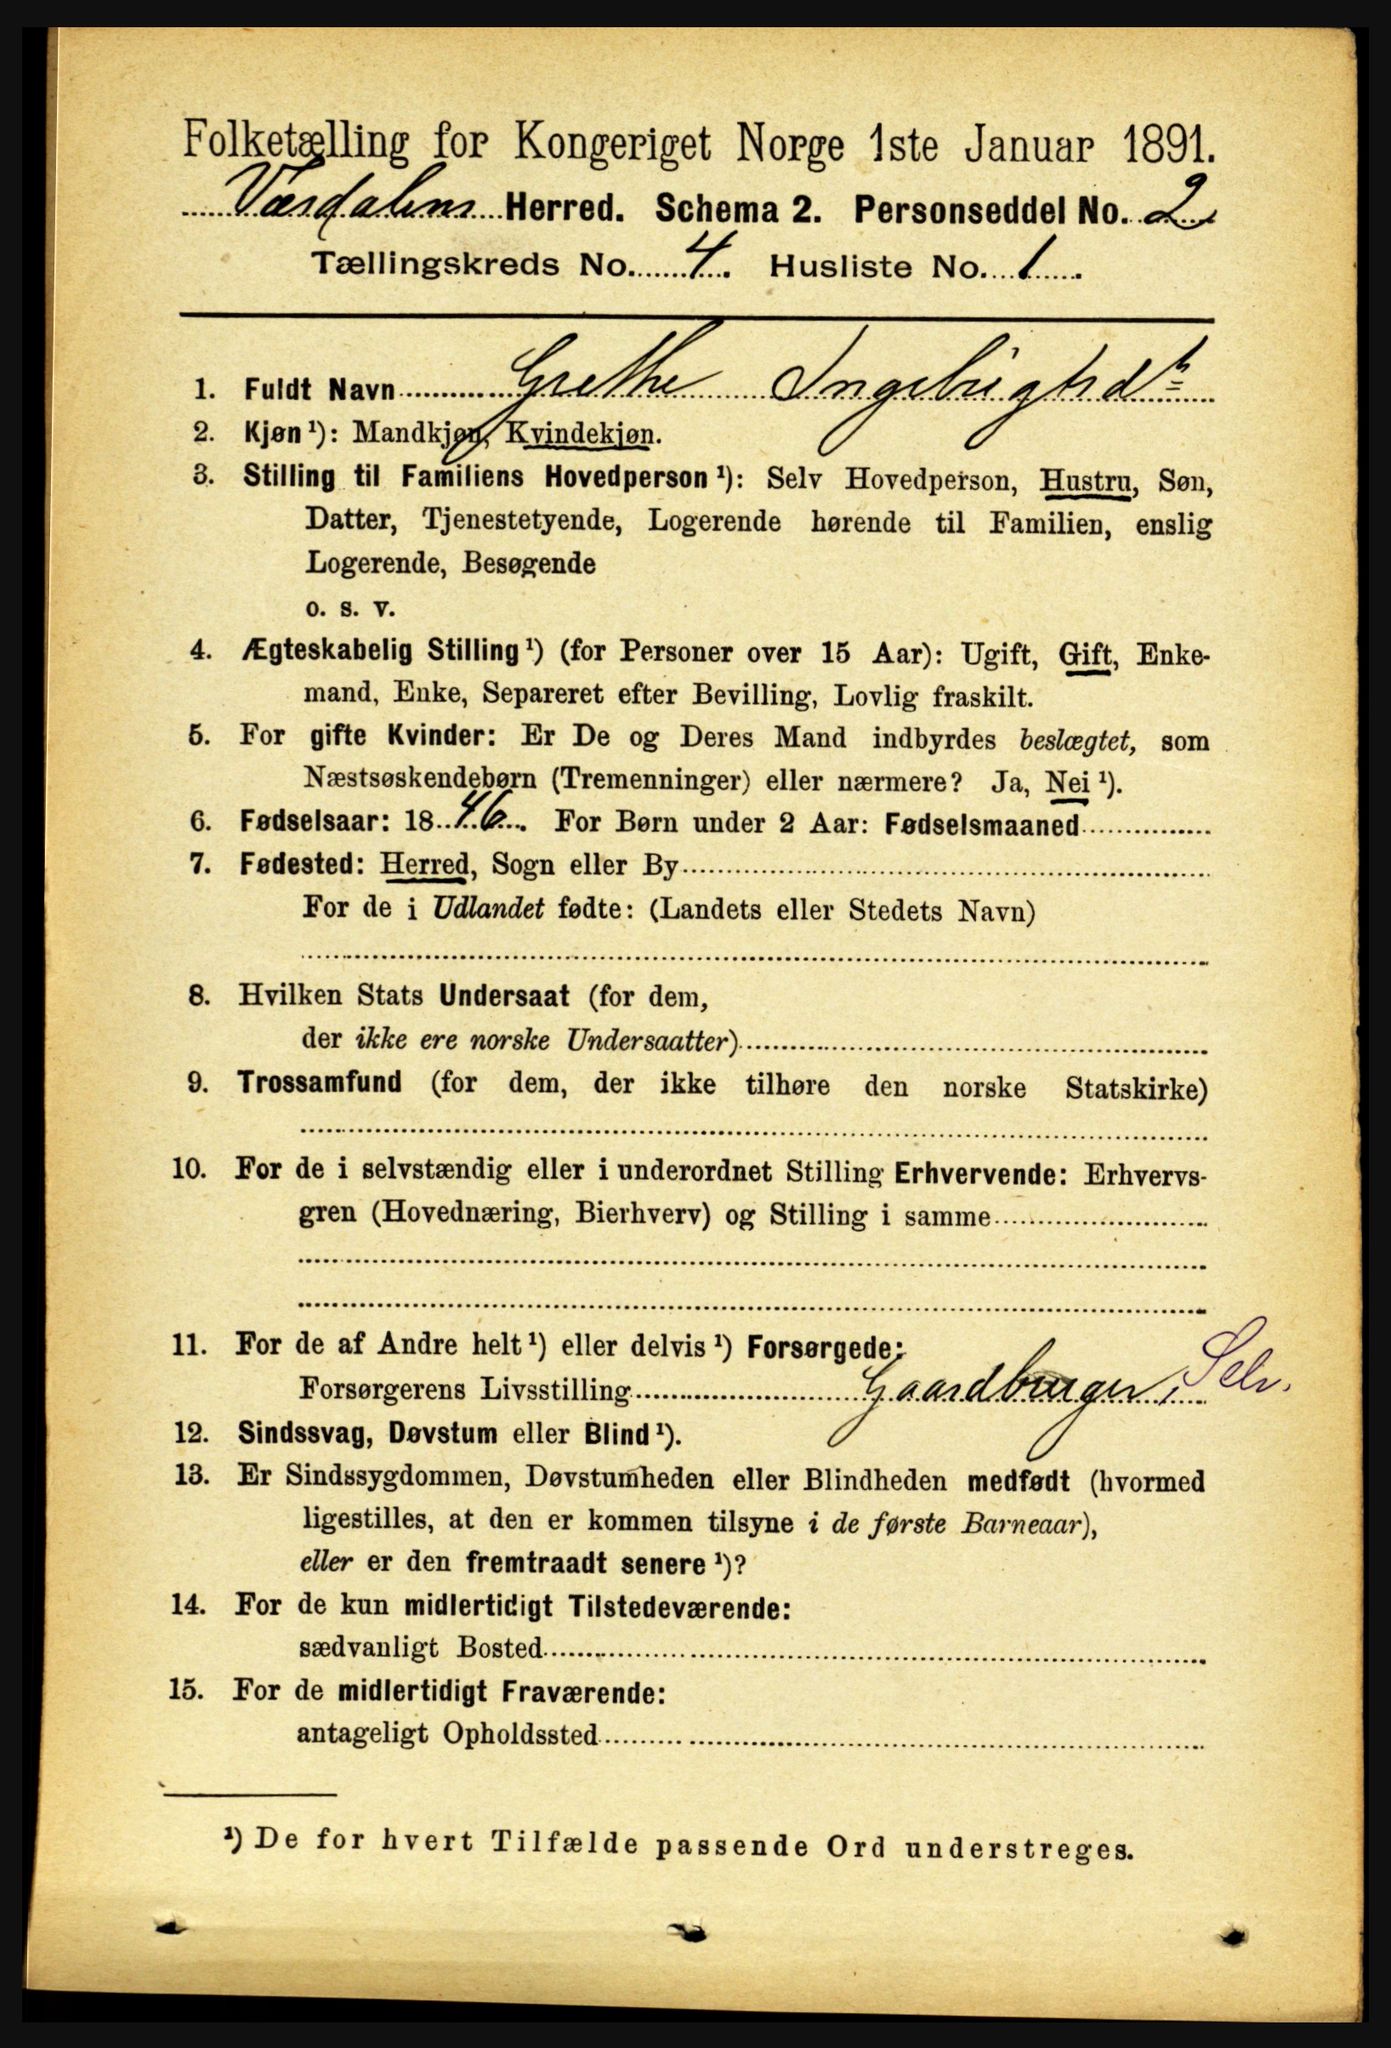 Folketælling for Kongeriget Norge 1ste Januar 1891.
Værdalens Herred. Schema 2. Personseddel No. 2
Tællingskreds No. 4. Husliste No. 1
1. Fuldt Navn Grethe Ingebrigtsdtr
2. Kjøn ¹): Mandkjøn, Kvindekjøn.
3. Stilling til Familiens Hovedperson ¹): Selv Hovedperson, Hustru, Søn,
Datter, Tjenestetyende, Logerende hørende til Familien, enslig
Logerende, Besøgende
o. s. v.
4. Ægteskabelig Stilling ¹) (for Personer over 15 Aar): Ugift, Gift, Enke-
mand, Enke, Separeret efter Bevilling, Lovlig fraskilt.
5. For gifte Kvinder: Er De og Deres Mand indbyrdes beslægtet, som
Næstsøskendebørn (Tremenninger) eller nærmere? Ja, Nei ¹).
6. Fødselsaar: 1846. For Børn under 2 Aar: Fødselsmaaned
7. Fødested: Herred, Sogn eller By
For de i Udlandet fødte: (Landets eller Stedets Navn)
8. Hvilken Stats Undersaat (for dem,
der ikke ere norske Undersaatter)
9. Trossamfund (for dem, der ikke tilhøre den norske Statskirke)
10. For de i selvstændig eller i underordnet Stilling Erhvervende: Erhvervs-
gren (Hovednæring, Bierhverv) og Stilling i samme
11. For de af Andre helt ¹) eller delvis ¹) Forsørgede:
Forsørgerens Livsstilling Gaardbruger, Selv.
12. Sindssvag, Døvstum eller Blind ¹).
13. Er Sindssygdommen, Døvstumheden eller Blindheden medfødt (hvormed
ligestilles, at den er kommen tilsyne i de første Barneaar),
eller er den fremtraadt senere ¹)?
14. For de kun midlertidigt Tilstedeværende:
sædvanligt Bosted
15. For de midlertidigt Fraværende:
antageligt Opholdssted
¹) De for hvert Tilfælde passende Ord understreges.